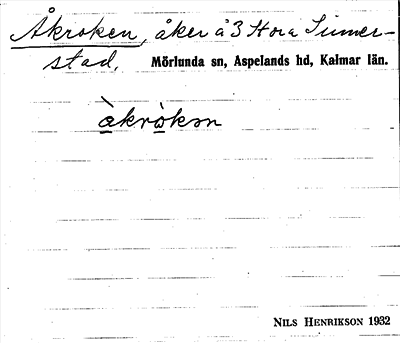 Åkroken, åker å 3 Hora Simmer-
stad. Mörlunda sn, Aspelands hd, Kalmar län.
àkrò̤kən
NILS HENRIKSON 1932